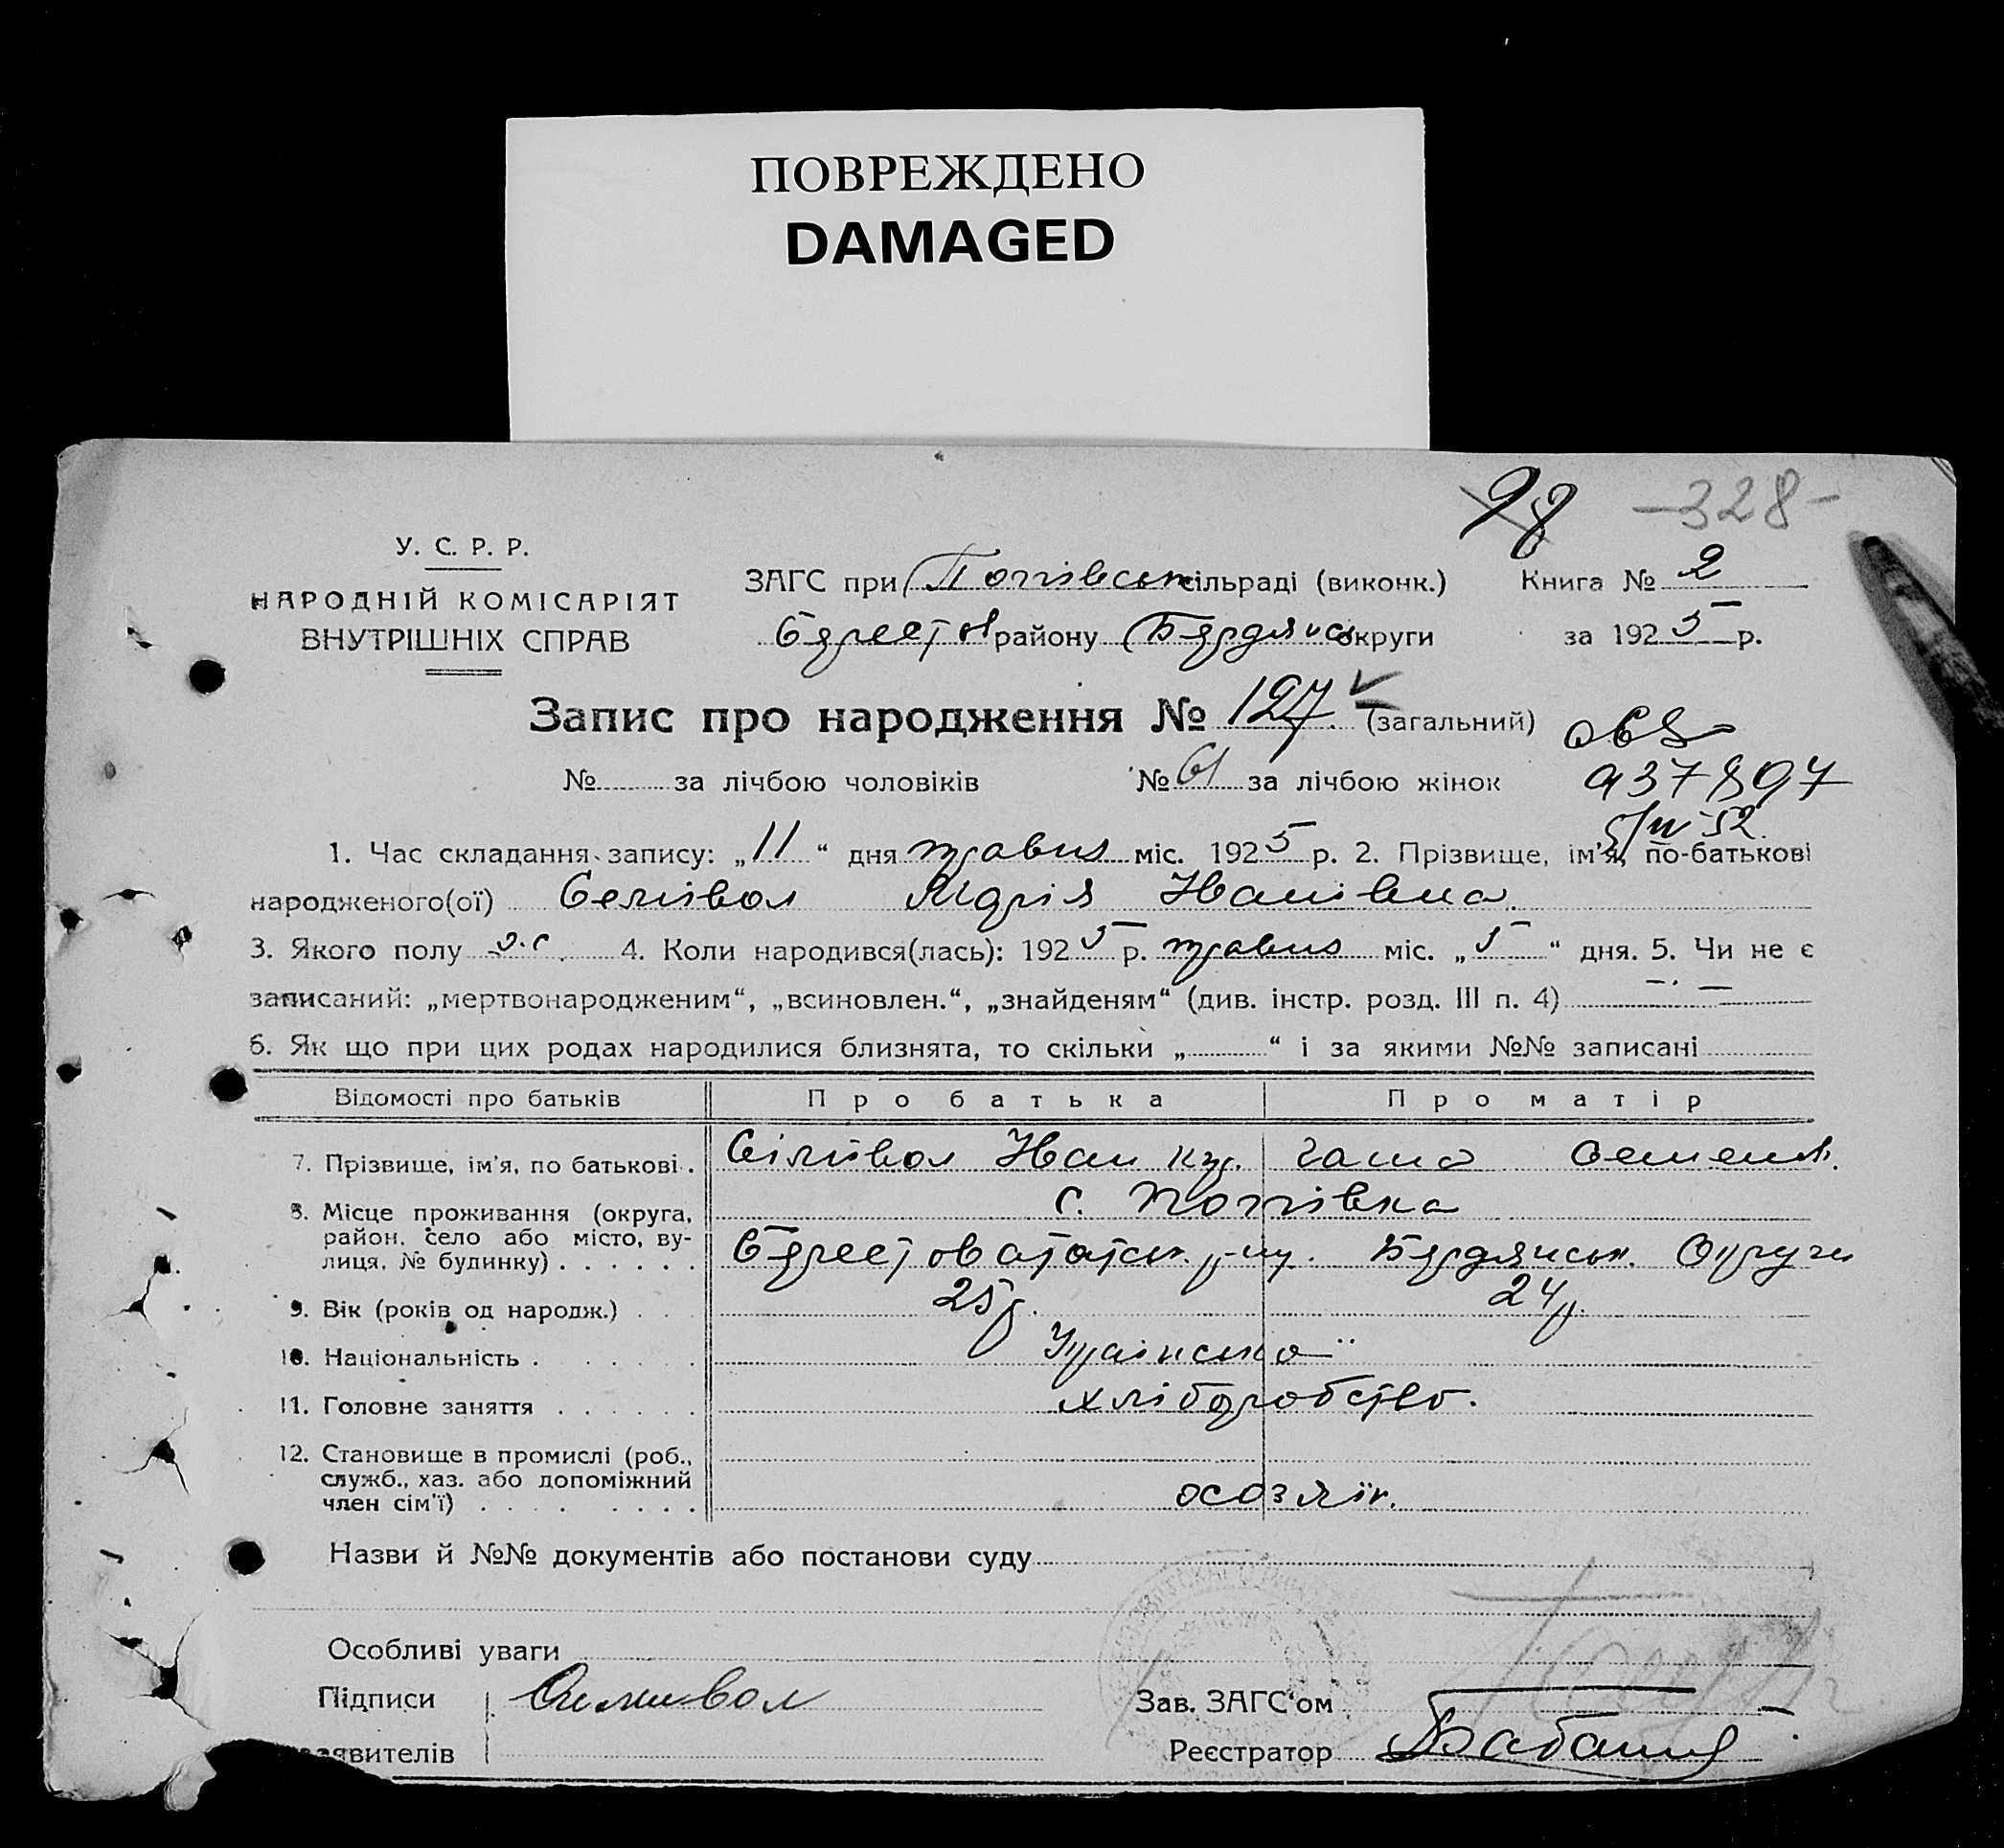 ПОВРЕЖДЕНО
DAMAGED
98 -328-
У. С. Р. Р.
НАРОДНІЙ КОМІСАРІЯТ
ВНУТРІШНІХ СПРАВ
ЗАГС при Попівськ сільраді (виконк.) Книга № 2
району Бердянськ округи за 1925 р.
Запис про народження № 127. (загальний)
№ за лічбою чоловіків № 61 за лічбою жінок
1. Час складання запису: „11“ дня травня міс. 1925 р. 2. Прізвище, ім'я, по-батькові
народженого(ої) Селівол Марія Іванівна.
3. Якого полу ж. 4. Коли народився(лась): 1925 р. травня міс. „5“ дня. 5. Чи не є
записаний: „мертвонародженим“, „всиновлен.“, „знайденям“ (див. інстр. розд. III п. 4) — · —
6. Як що при цих родах народилися близнята, то скільки „ “ і за якими №№ записані
Відомості про батьків Про батька Про матір
7. Прізвище, ім'я, по батькові . Сілівол Іван Семенів.
8. Місце проживання (округа, район, село або місто, вулиця, № будинку) . . . . . . с. Попівка
Бердянськ. Округи
9. Вік (років од народж.) . . . 25 р. 24 р.
10. Національність . . . . . . Українська
11. Головне заняття . . . . . . хліборобство.
12. Становище в промислі (роб.,
служб., хаз. або допоміжний
член сім'ї) . . . . . . . .
Назви й №№ документів або постанови суду
Особливі уваги
Підписи Селивол Зав. ЗАГС'ом
заявителів Реєстратор